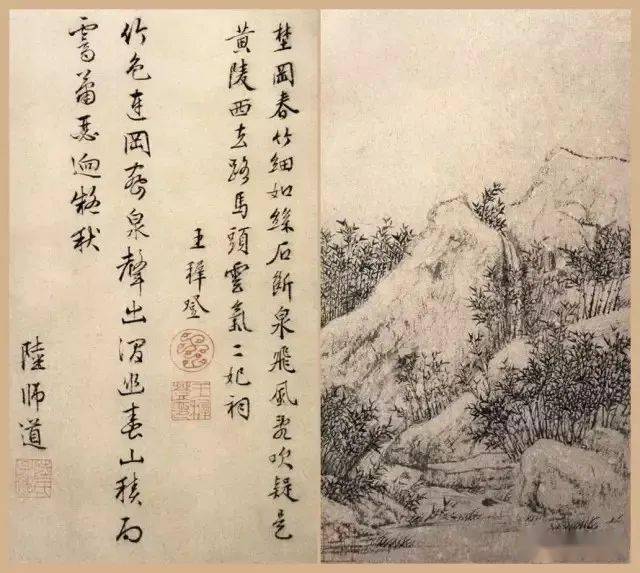 埜岡春竹細如絲石斷泉飛風亂吹疑是
黄陵西去路馬頭雲氣二妃祠
王穉登
竹色連岡密泉聲出澗幽春山積雨
霽蕭瑟迥秋
陸師道